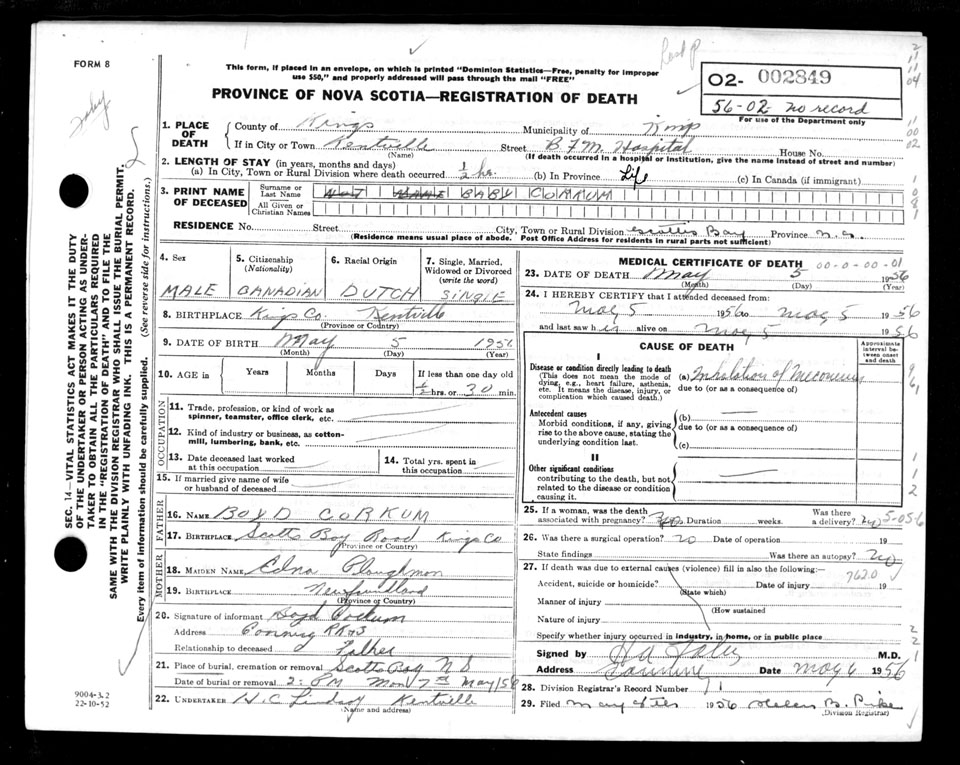 FORM 8
This form, if placed in an envelope, on which is printed "Dominion Statistics—Free, penalty for improper
use $50," and properly addressed will pass through the mail "FREE"
PROVINCE OF NOVA SCOTIA—REGISTRATION OF DEATH
02- 002849
56-02 no record
For use of the Department only
1. PLACE OF DEATH
County of Kings Municipality of Kings
If in City or Town Kentville Street B F M Hospital House No.
(Name) (If death occurred in a hospital or institution, give the name instead of street and number)
2. LENGTH OF STAY (in years, months and days)
(a) In City, Town or Rural Division where death occurred ½ hr. (b) In Province Life (c) In Canada (if immigrant)
3. PRINT NAME OF DECEASED
Surname or Last Name BABY CORKUM
All Given or Christian Names
RESIDENCE No. Street City, Town or Rural Division Scotts Bay Province N.S.
(Residence means usual place of abode. Post Office Address for residents in rural parts not sufficient)
4. Sex
MALE
5. Citizenship (Nationality)
CANADIAN
6. Racial Origin
DUTCH
7. Single, Married, Widowed or Divorced (write the word)
SINGLE
8. BIRTHPLACE Kings Co. Kentville
(Province or Country)
9. DATE OF BIRTH May 5 1956
(Month) (Day) (Year)
10. AGE in Years Months Days If less than one day old
½ hrs. or 30 min.
OCCUPATION
11. Trade, profession, or kind of work as spinner, teamster, office clerk, etc.
12. Kind of industry or business, as cotton-mill, lumbering, bank, etc.
13. Date deceased last worked at this occupation
14. Total yrs. spent in this occupation
15. If married give name of wife or husband of deceased
FATHER
16. NAME BOYD CORKUM
17. BIRTHPLACE Scotts Bay Road Kings Co
(Province or Country)
MOTHER
18. MAIDEN NAME Edna Ploughman
19. BIRTHPLACE Newfoundland
(Province or Country)
20. Signature of informant Boyd Corkum
Address Canning RR #3
Relationship to deceased Father
21. Place of burial, cremation or removal Scotts Bay
Date of burial or removal 2: PM Mon 7th May/56
22. UNDERTAKER H. C. Lindsay Kentville
(Name and address)
MEDICAL CERTIFICATE OF DEATH 00-0-00-01
23. DATE OF DEATH May 5 1956
(Month) (Day) (Year)
24. I HEREBY CERTIFY that I attended deceased from:
May 5 1956 to May 5 1956
and last saw h is alive on May 5 1956
CAUSE OF DEATH
Approximate interval between onset and death
I
Disease or condition directly leading to death
(This does not mean the mode of dying, e.g., heart failure, asthenia, etc. It means the disease, injury, or complication which caused death.)
(a) Inhalation of Meconium
due to (or as a consequence of)
Antecedent causes
Morbid conditions, if any, giving rise to the above cause, stating the underlying condition last.
(b)
due to (or as a consequence of)
(c)
II
Other significant conditions
contributing to the death, but not related to the disease or condition causing it.
25. If a woman, was the death associated with pregnancy? Duration weeks. Was there a delivery?
5-056
26. Was there a surgical operation? no Date of operation 19
State findings Was there an autopsy? No
27. If death was due to external causes (violence) fill in also the following:—
762.0
Accident, suicide or homicide? Date of injury 19
(State which)
Manner of injury
(How sustained)
Nature of injury
Specify whether injury occurred in industry, in home, or in public place
Signed by M.D.
Address Canning Date May 6 1956
28. Division Registrar's Record Number 71
29. Filed 1956 Helen B. Pike
(Division Registrar)
SEC. 14—VITAL STATISTICS ACT MAKES IT THE DUTY
OF THE UNDERTAKER OR PERSON ACTING AS UNDER-
TAKER TO OBTAIN ALL THE PARTICULARS REQUIRED
IN THE "REGISTRATION OF DEATH" AND TO FILE THE
SAME WITH THE DIVISION REGISTRAR WHO SHALL ISSUE THE BURIAL PERMIT.
WRITE PLAINLY WITH UNFADING INK. THIS IS A PERMANENT RECORD.
Every item of information should be carefully supplied. (See reverse side for instructions.)
9004-3.2
22-10-52